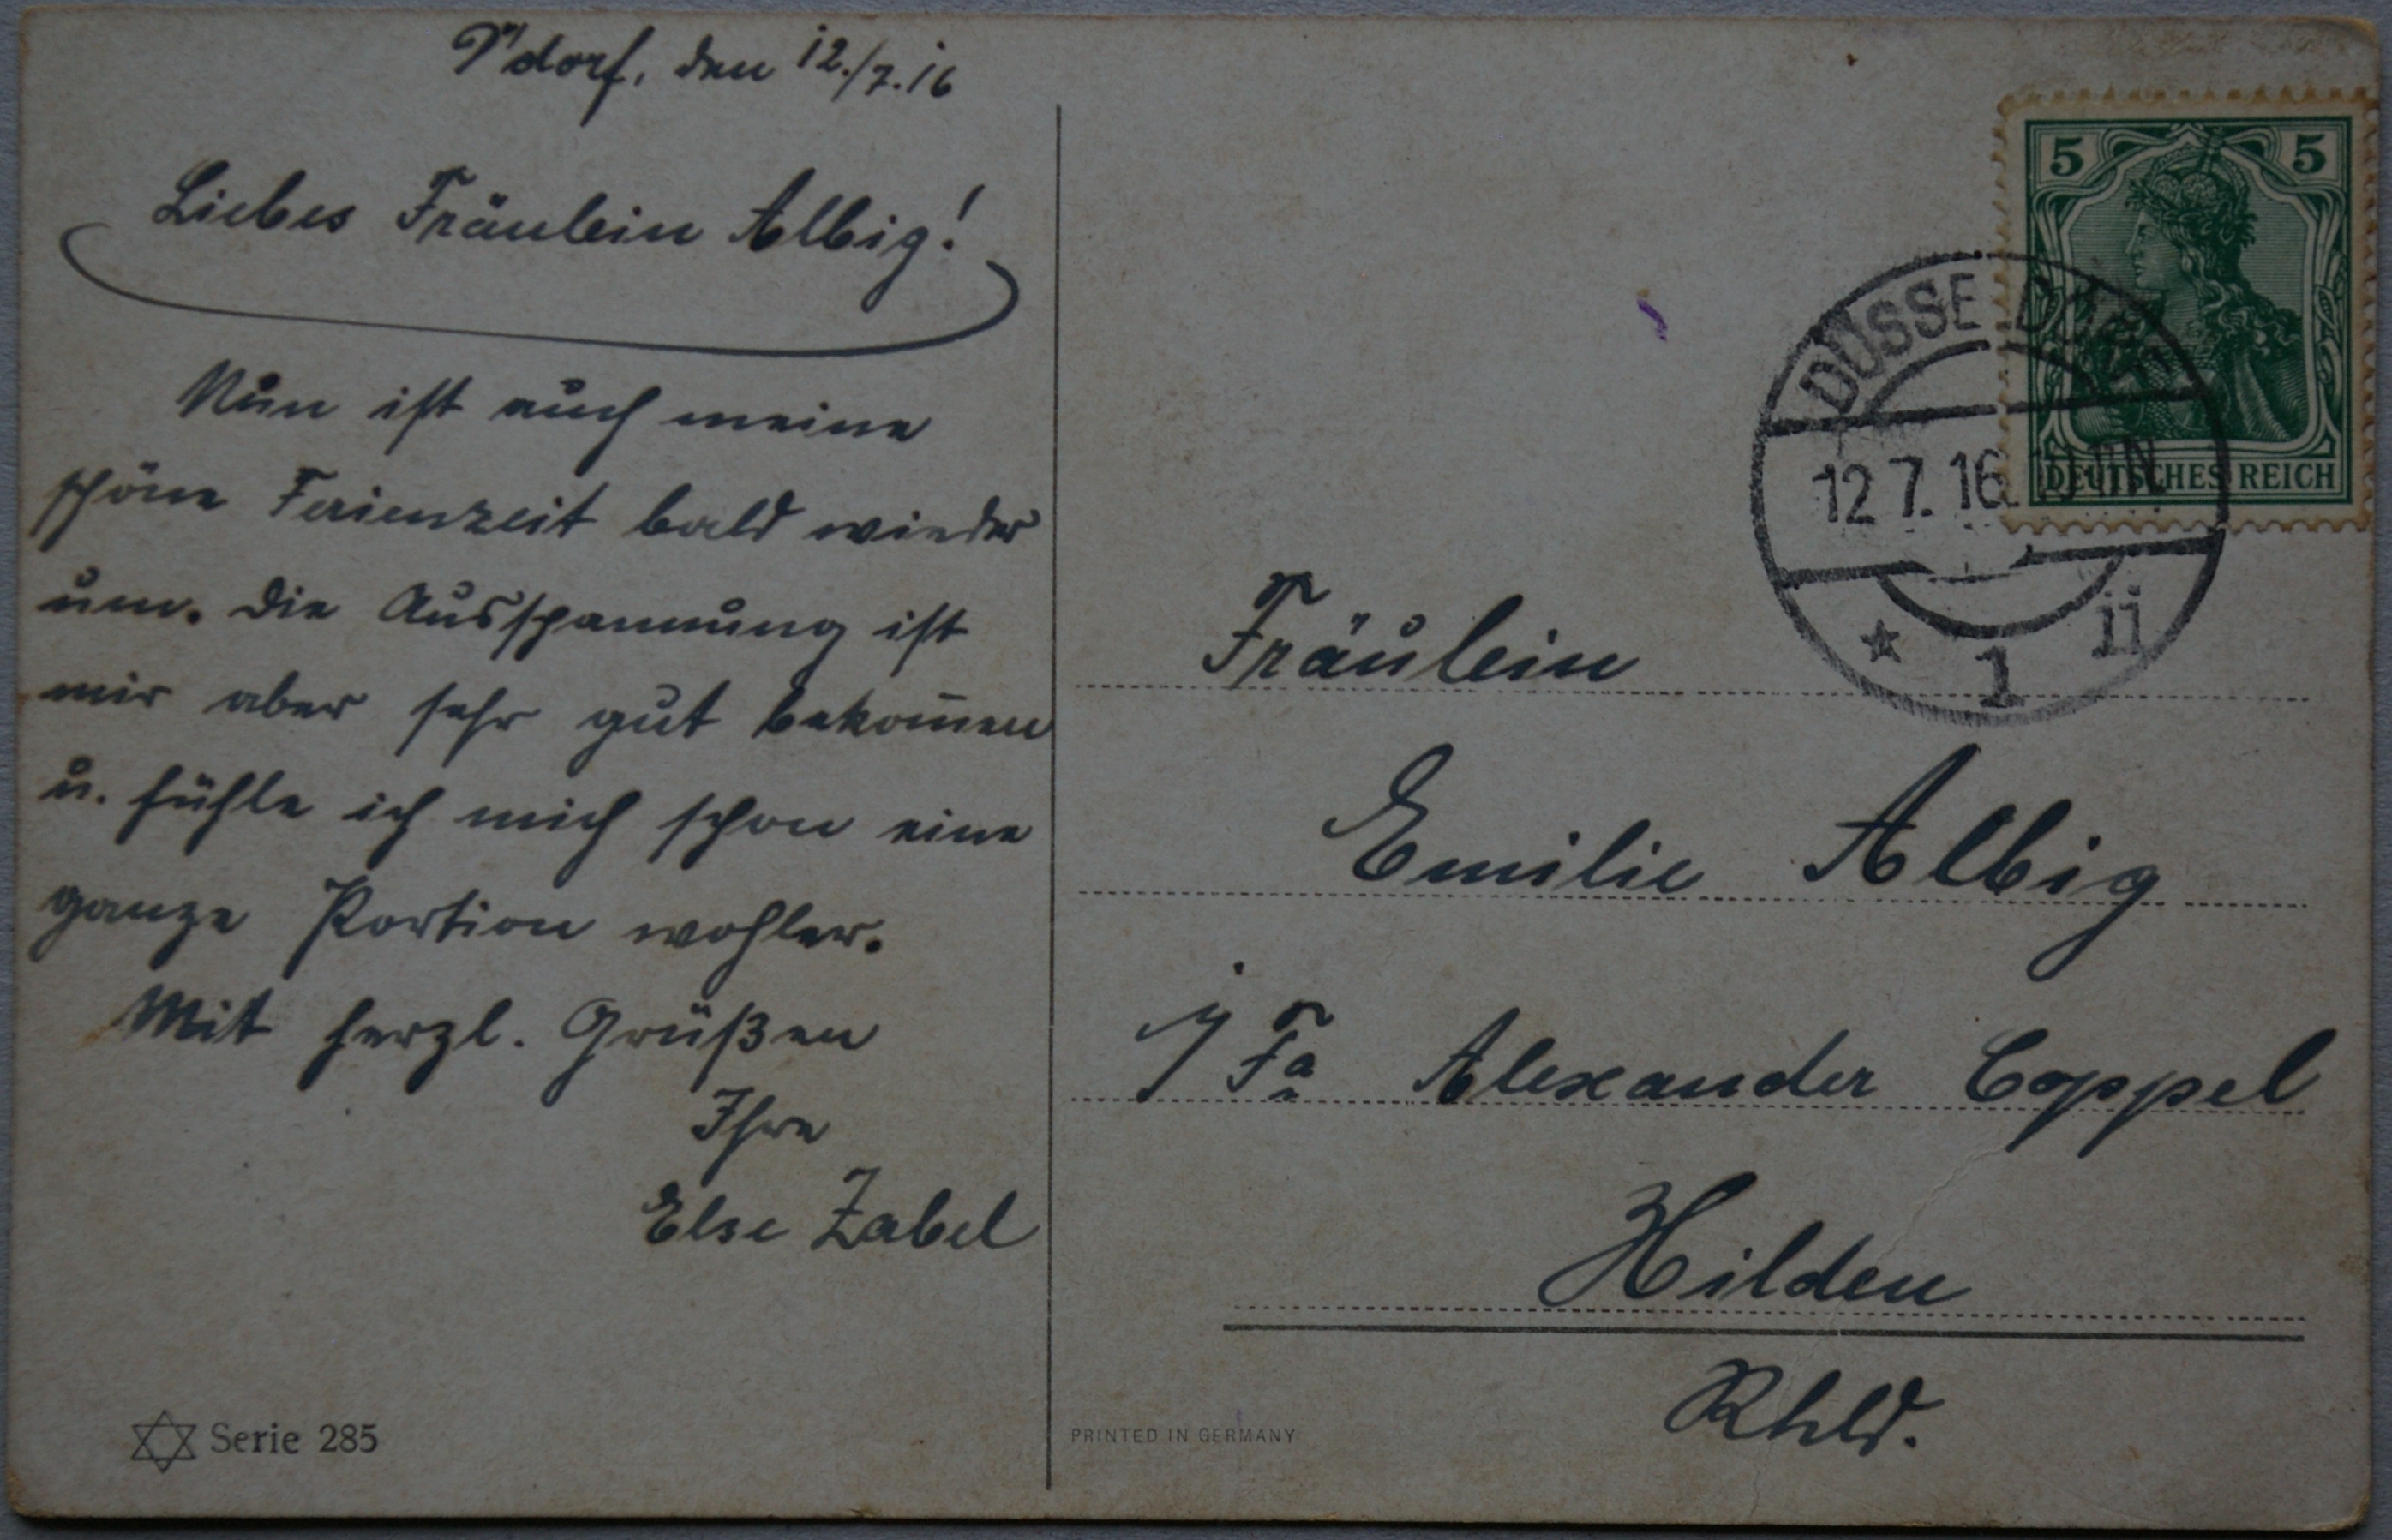 D'dorf, den 12./7.16
Liebes Fräulein Albig!
Nun ist auch meine
schöne Ferienzeit bald wieder
um. Die Ausspannung ist
mir aber sehr gut bekom̅en
u. fühle ich mich schon eine
ganze Portion wohler.
Mit herzl. Grüßen
Ihre
Else Zabel
Serie 285
5 5
DEUTSCHES REICH
DÜSSELDORF
12 7. 16
* 1 ii
Fräulein
Emilie Albig
i/Fa Alexander Coppel
Hilden
Rhld.
PRINTED IN GERMANY